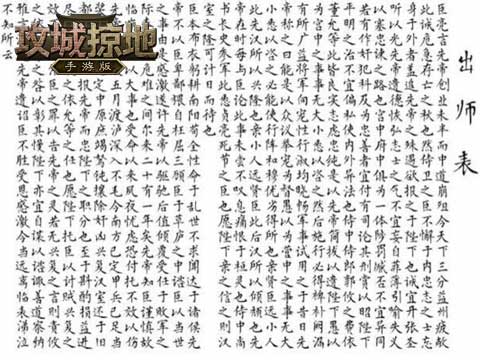 攻城掠地
手游版
出师表
臣亮言先帝创业未半而中道崩殂今天下三分益州疲敝
此诚危急存亡之秋也然侍卫之臣不懈于内忠志之士忘
身于外者盖追先帝之殊遇欲报之于陛下也诚宜开张圣
听以光先帝遗德恢弘志士之气不宜妄自菲薄引喻失义
以塞忠谏之路也宫中府中俱为一体陟罚臧否不宜异同
若有作奸犯科及为忠善者宜付有司论其刑赏以昭陛下
平明之治不宜偏私使内外异法也侍中侍郎郭攸之费依
董允等此皆良实志虑忠纯是以先帝简拔以遗陛下愚以
为宫中之事事无大小悉以咨之然后施行必得裨补阙漏
有所广益将军向宠性行淑均晓畅军事试用之于昔日先
帝称之曰能是以众议举宠为督愚以为营中之事事无大
小悉以咨之必能使行阵和穆优劣得所也亲贤臣远小人
此先汉所以兴隆也亲小人远贤臣此后汉所以倾颓也先
帝在时每与臣论此事未尝不叹息痛恨于桓灵也侍中尚
书长史参军此悉贞亮死节之臣也愿陛下亲之信之则汉
室之隆可计日而待也
臣本布衣躬耕南阳苟全性命于乱世不求闻达于诸侯先
帝不以臣卑鄙猥自枉屈三顾臣于草庐之中谘臣以当世
之事由是感激遂许先帝以驱驰后值倾覆受任于败军之
际奉命于危难之间尔来二十有一年矣先帝知臣谨慎故
大事也受命以来夙夜忧虑恐付托不效以伤
五月渡泸深入不毛今南方已定甲兵已足当
定中原庶竭驽钝攘除奸凶兴复汉室还于旧
报先帝而忠陛下之职分也至于斟酌损益进
之依允等之任也愿陛下托臣以讨贼兴复之
之罪以告先帝之灵若无兴德之言则责攸之
之咎以彰其慢陛下亦宜自谋以谘诹善道察纳
雅言深追先帝遗诏臣不胜受恩感激今当远离临表涕泣
不知所云